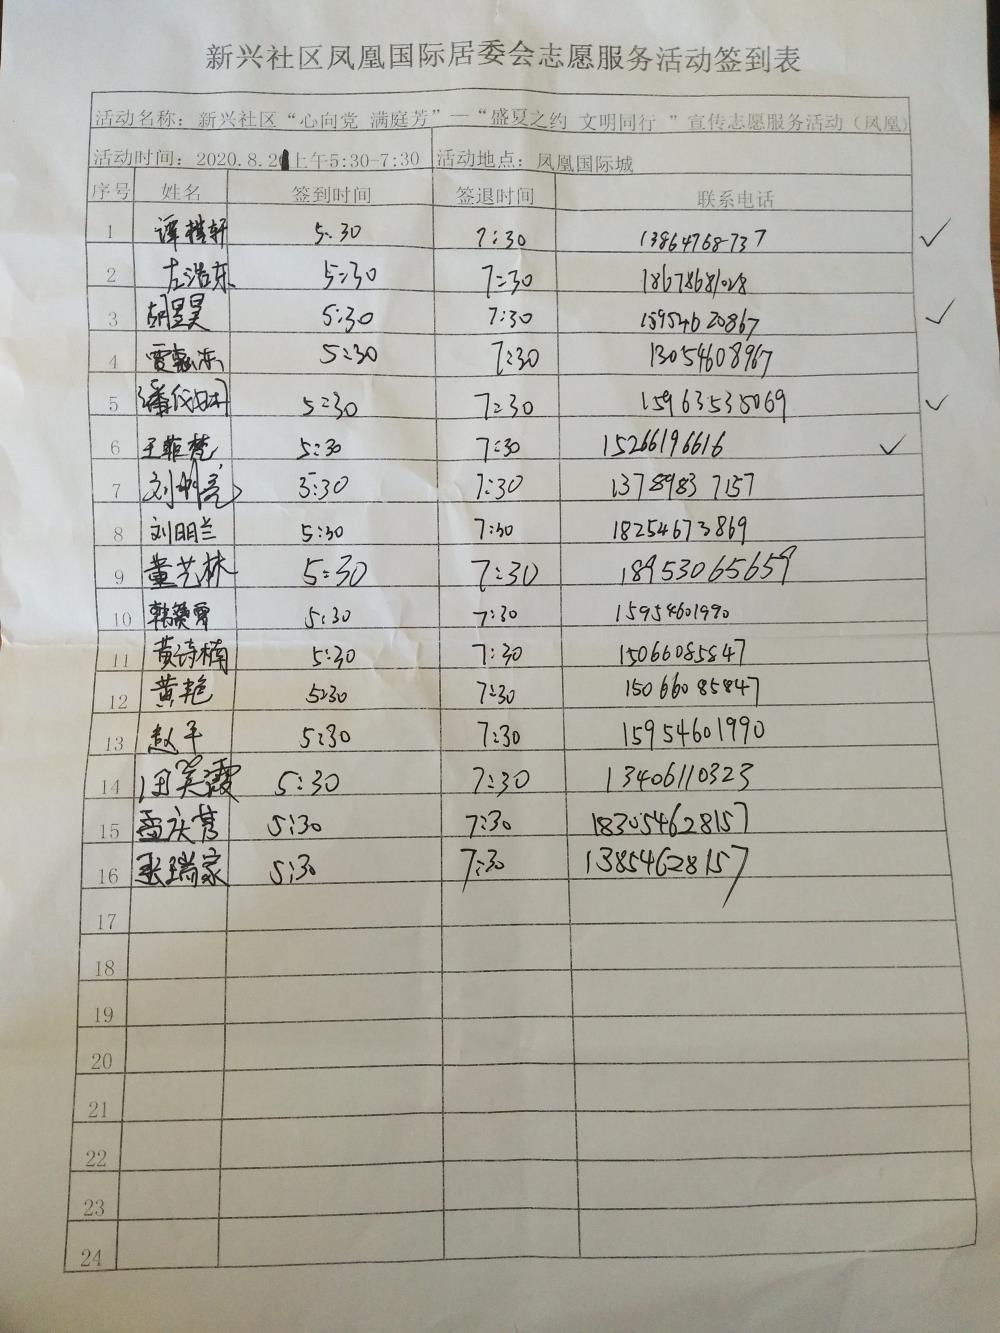 新兴社区凤凰国际居委会志愿服务活动签到表
活动名称：新兴社区“心向党 满庭芳”—“盛夏之约 文明同行 ”宣传志愿服务活动（凤凰）
活动时间：2020.8.21上午5:30-7:30 活动地点：凤凰国际城
序号 姓名 签到时间 签退时间 联系电话
1 谭棋轩 5:30 7:30 13864768737 ✓
2 左浩东 5:30 7:30 18678681028
3 胡昱昊 5:30 7:30 15954620867 ✓
4 5:30 7:30 13054608967
5 5:30 7:30 15963535069 ✓
6 王菲梵 5:30 7:30 15266196616 ✓
7 5:30 7:30 13789837157
8 刘明兰 5:30 7:30 18254673869
9 董艺林 5:30 7:30 18953065659
10 5:30 7:30 15954601990
11 黄诗楠 5:30 7:30 15066085847
12 黄艳 5:30 7:30 15066085847
13 赵平 5:30 7:30 15954601990
14 5:30 7:30 13406110323
15 孟庆菁 5:30 7:30 183054628157
16 张瑞家 5:30 7:30 13854628157
17
18
19
20
21
22
23
24